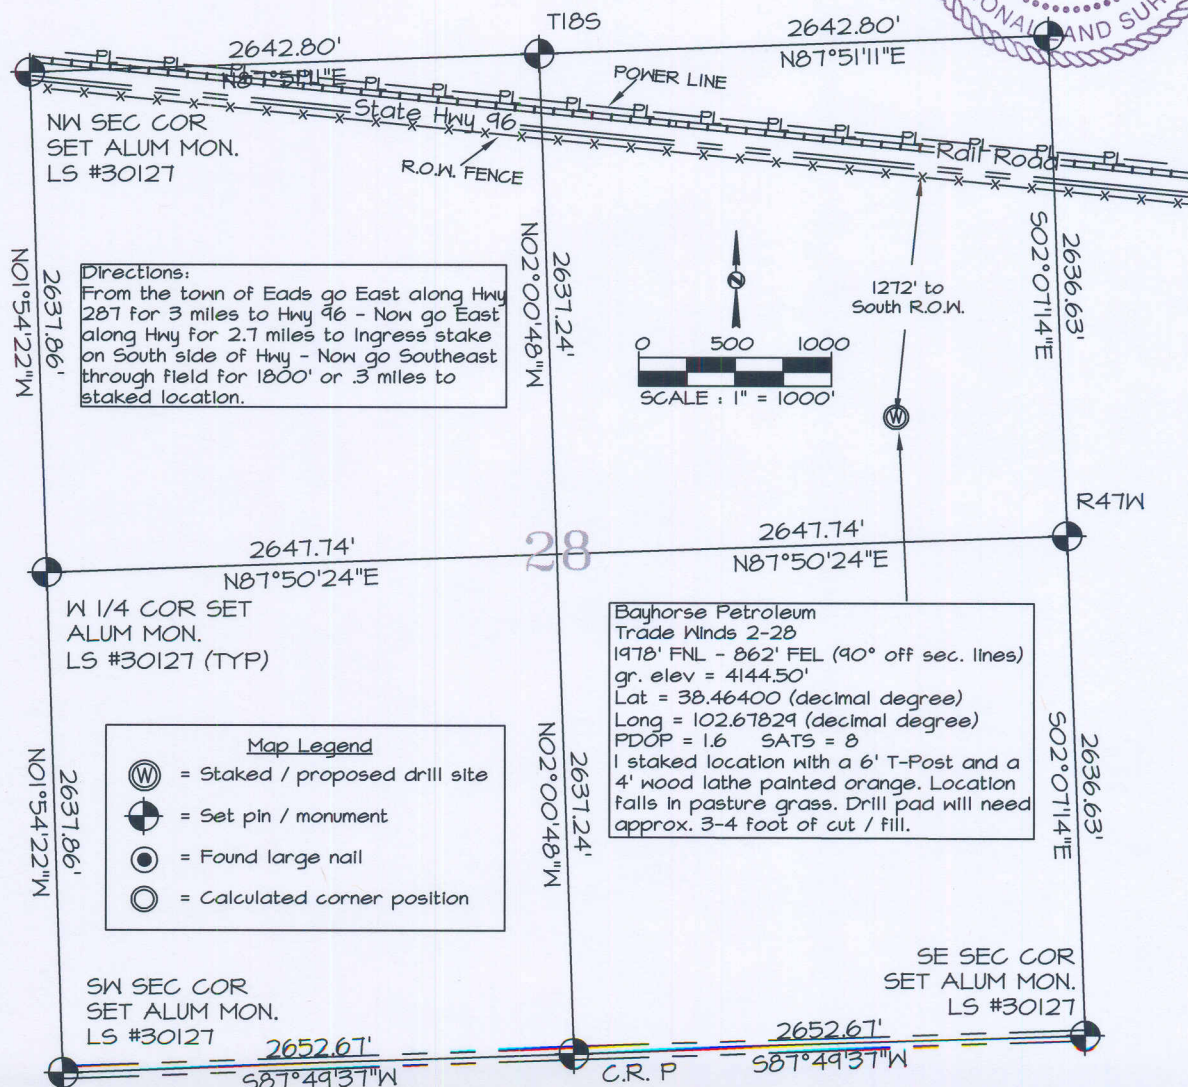 ONAL LAND SUR
T18S
2642.80'
N87°51'11"E
2642.80'
N87°51'11"E
PL PL PL PL PL PL PL PL PL PL PL PL PL PL PL PL
POWER LINE
State Hwy 96
Rail Road
R.O.W. FENCE
NW SEC COR
SET ALUM MON.
LS #30127
N01°54'22"W
2637.86'
N02°00'48"W
2637.24'
S02°07'14"E
2636.63'
Directions:
From the town of Eads go East along Hwy
287 for 3 miles to Hwy 96 - Now go East
along Hwy for 2.7 miles to Ingress stake
on South side of Hwy - Now go Southeast
through field for 1800' or .3 miles to
staked location.
N
0 500 1000
SCALE : 1" = 1000'
1272' to
South R.O.W.
W
R47W
2647.74'
N87°50'24"E
28
2647.74'
N87°50'24"E
W 1/4 COR SET
ALUM MON.
LS #30127 (TYP)
Bayhorse Petroleum
Trade Winds 2-28
1978' FNL - 862' FEL (90° off sec. lines)
gr. elev = 4144.50'
Lat = 38.46400 (decimal degree)
Long = 102.67829 (decimal degree)
PDOP = 1.6 SATS = 8
I staked location with a 6' T-Post and a
4' wood lathe painted orange. Location
falls in pasture grass. Drill pad will need
approx. 3-4 foot of cut / fill.
Map Legend
W = Staked / proposed drill site
= Set pin / monument
= Found large nail
= Calculated corner position
N01°54'22"W
2637.86'
N02°00'48"W
2637.24'
S02°07'14"E
2636.63'
SW SEC COR
SET ALUM MON.
LS #30127
SE SEC COR
SET ALUM MON.
LS #30127
2652.67'
S87°49'37"W
C.R. P
2652.67'
S87°49'37"W